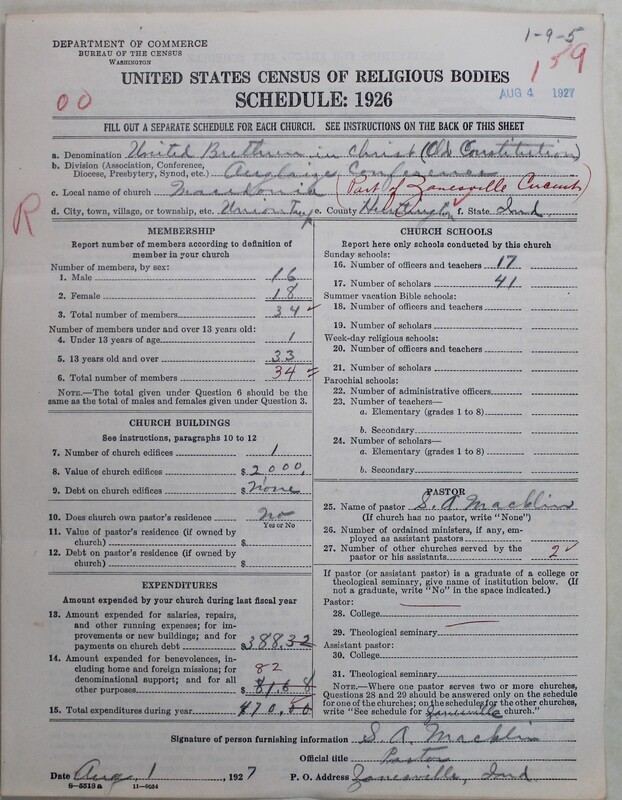 DEPARTMENT OF COMMERCE
BUREAU OF THE CENSUS
WASHINGTON
1-9-5
159
AUG 4 1927
UNITED STATES CENSUS OF RELIGIOUS BODIES
SCHEDULE: 1926
00
FILL OUT A SEPARATE SCHEDULE FOR EACH CHURCH. SEE INSTRUCTIONS ON THE BACK OF THIS SHEET
a. Denomination United Brethren in Christ (Old Constitution)
b. Division (Association, Conference, Diocese, Presbytery, Synod, etc.) Auglaize Conference
c. Local name of church Macedonia (Part of Zanesville Circuit)
d. City, town, village, or township, etc. Union Twp e. County Huntington f. State Ind
R
MEMBERSHIP
Report number of members according to definition of
member in your church
Number of members, by sex:
1. Male 16
2. Female 18
3. Total number of members 34
Number of members under and over 13 years old:
4. Under 13 years of age 1
5. 13 years old and over 33
6. Total number of members 34
NOTE.—The total given under Question 6 should be
same as the total of males and females given under Question 3.
CHURCH BUILDINGS
See instructions, paragraphs 10 to 12
7. Number of church edifices 1
8. Value of church edifices $ 2000.
9. Debt on church edifices $ none
10. Does church own pastor's residence No
Yes or No
11. Value of pastor's residence (if owned by
church) $
12. Debt on pastor's residence (if owned by
church) $
EXPENDITURES
Amount expended by your church during last fiscal year
13. Amount expended for salaries, repairs,
and other running expenses; for im-
provements or new buildings; and for
payments on church debt $ 388.32
14. Amount expended for benevolences, in-
cluding home and foreign missions; for
denominational support; and for all
other purposes $ 81.68
82
15. Total expenditures during year $ 470.50
CHURCH SCHOOLS
Report here only schools conducted by this church
Sunday schools:
16. Number of officers and teachers 17
17. Number of scholars 41
Summer vacation Bible schools:
18. Number of officers and teachers
19. Number of scholars
Week-day religious schools:
20. Number of officers and teachers
21. Number of scholars
Parochial schools:
22. Number of administrative officers
23. Number of teachers—
a. Elementary (grades 1 to 8)
b. Secondary
24. Number of scholars—
a. Elementary (grades 1 to 8)
b. Secondary
PASTOR
25. Name of pastor S. A. Macklin
(If church has no pastor, write "None")
26. Number of ordained ministers, if any, em-
ployed as assistant pastors
27. Number of other churches served by the
pastor or his assistants 2
If pastor (or assistant pastor) is a graduate of a college or
theological seminary, give name of institution below. (If
not a graduate, write "No" in the space indicated.)
Pastor:
28. College
29. Theological seminary
Assistant pastor:
30. College
31. Theological seminary
NOTE.—Where one pastor serves two or more churches,
Questions 28 and 29 should be answered only on the schedule
for one of the churches; on the schedules for the other churches,
write "See schedule for Zanesville church."
Signature of person furnishing information S. A. Macklin
Official title Pastor
Date Aug. 1, 1927 P. O. Address Zanesville, Ind
8-5518a 11-9034